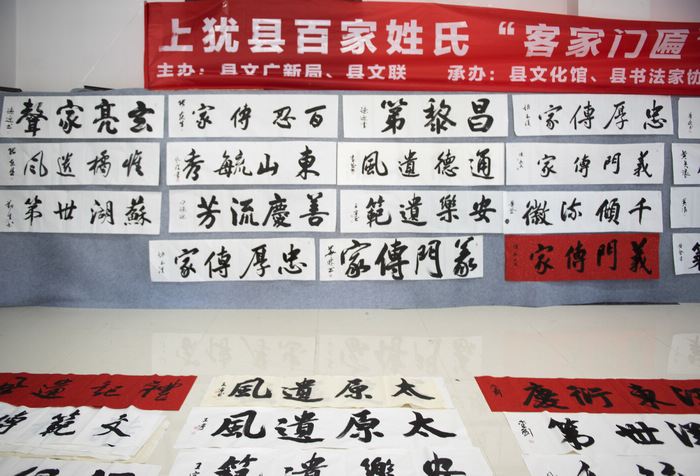 上犹县百家姓氏“客家门匾
主办：县文广新局、县文联 承办：县文化馆、县书法家协
玄亮家聲
百忍傳家
昌黎第
忠厚傳家
橘遺風
東山毓秀
通德遺風
義門傳家
蘇湖世第
善慶流芳
安樂遺範
千傾流徽
忠厚傳家
義門傳家
義門傳家
禮記遺風
太原遺風
東衍慶
文範
太原遺風
世第
安樂遺範